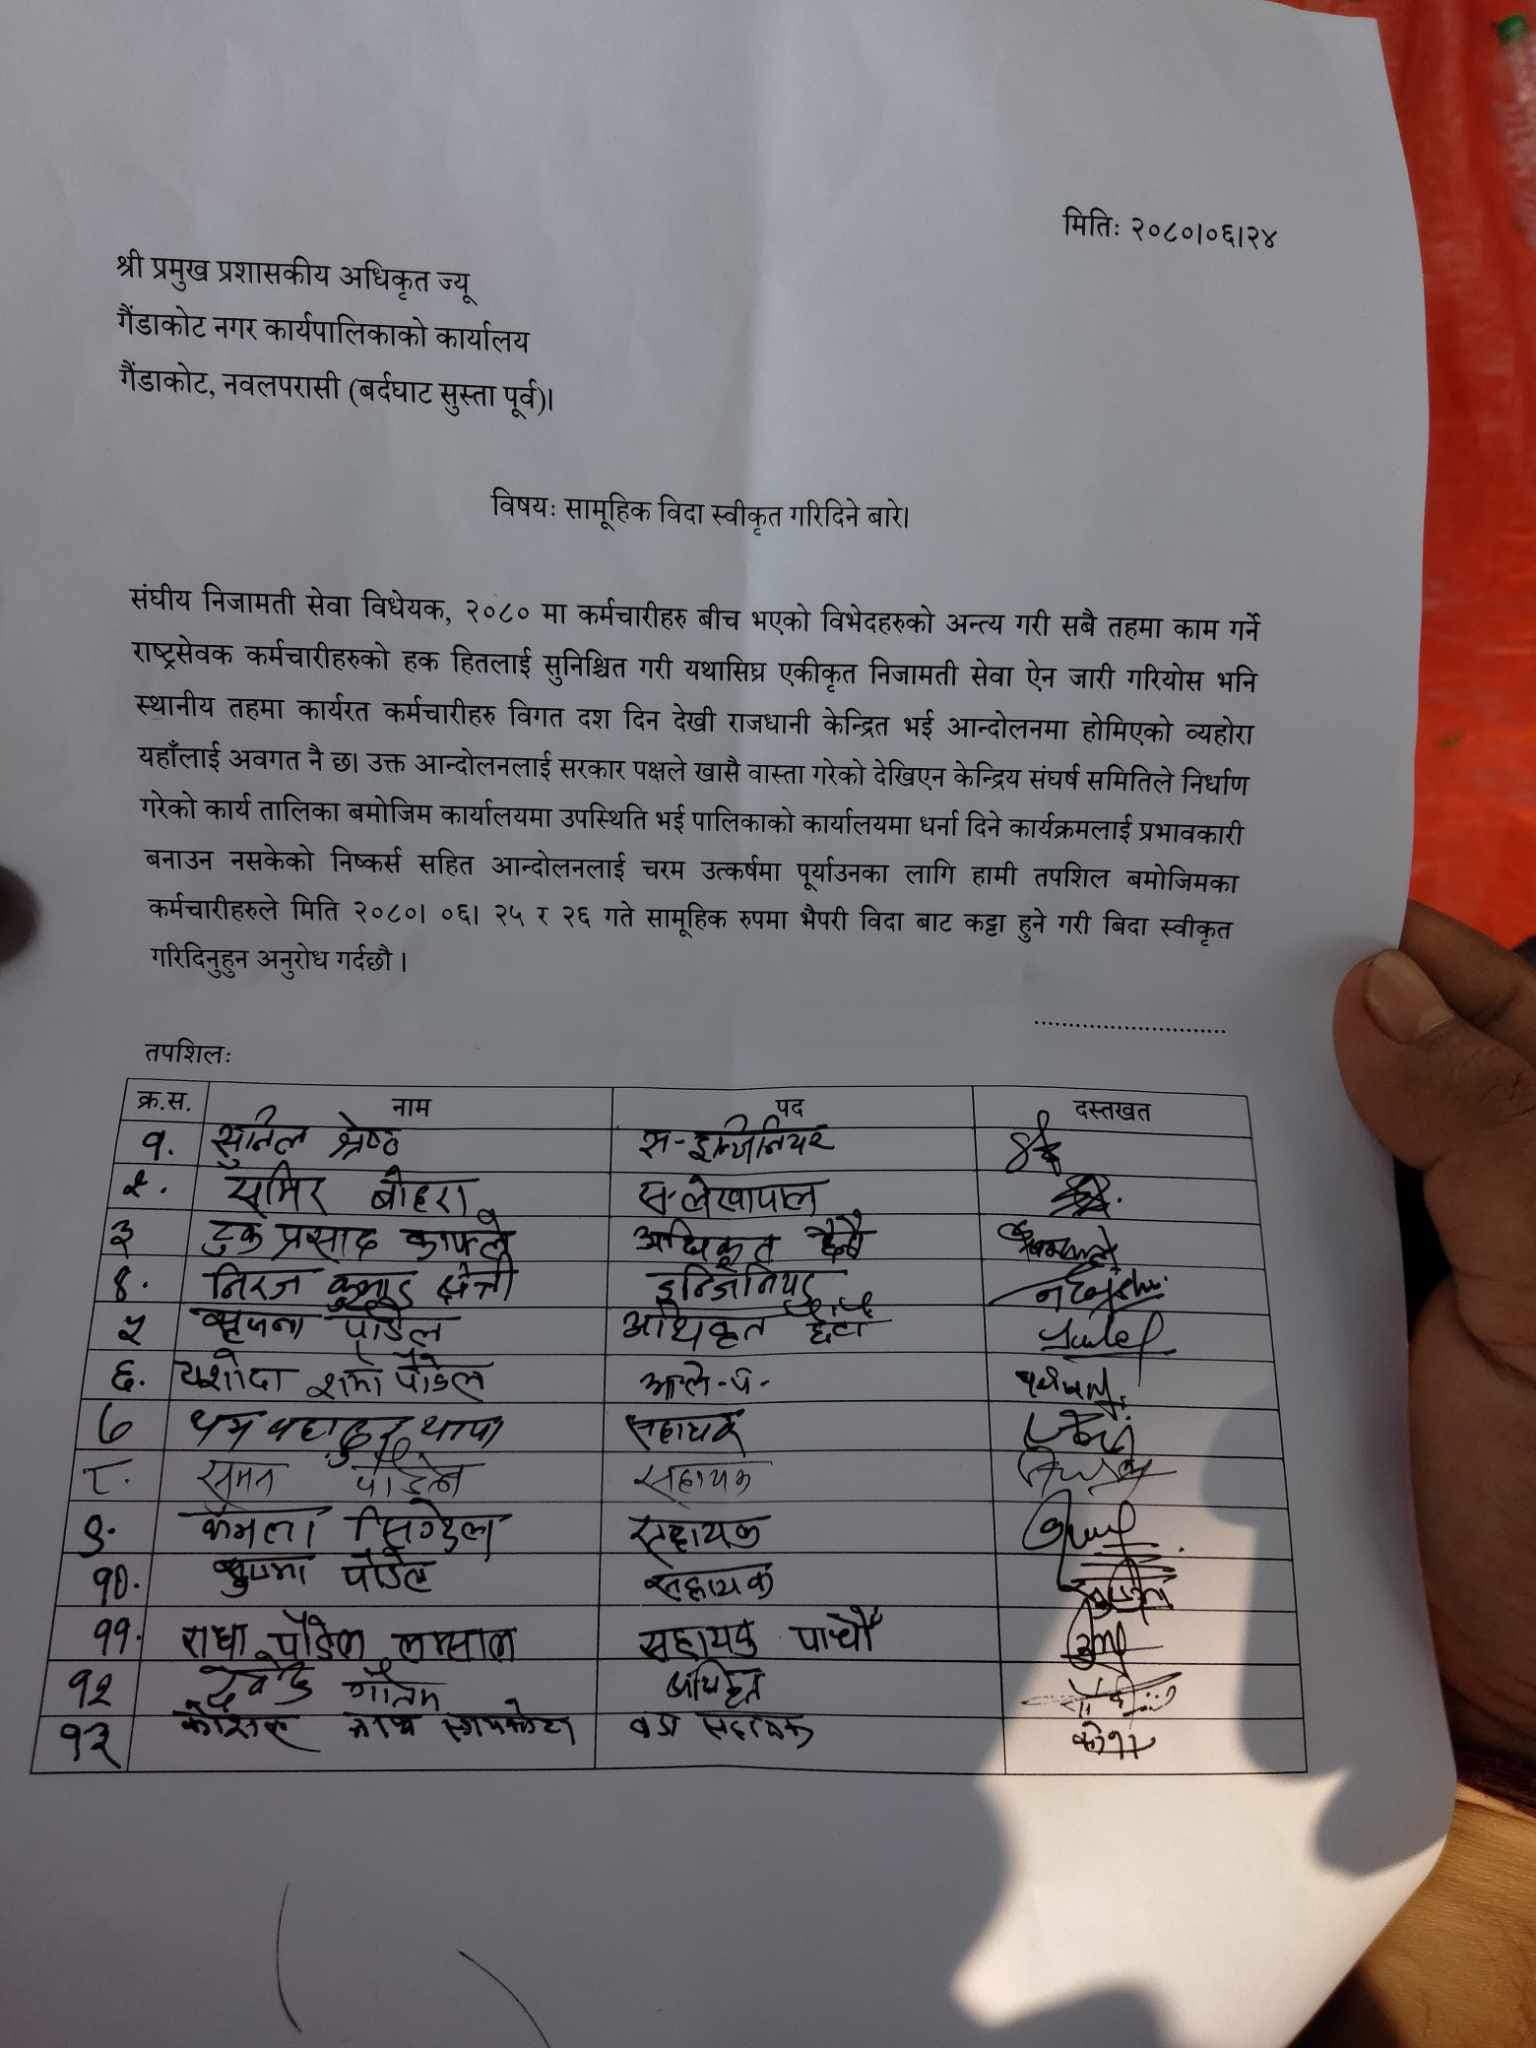 मितिः २०८०।०६।२४
श्री प्रमुख प्रशासकीय अधिकृत ज्यू
गैंडाकोट नगर कार्यपालिकाको कार्यालय
गैंडाकोट, नवलपरासी (बर्दघाट सुस्ता पूर्व)।
विषयः सामूहिक विदा स्वीकृत गरिदिने बारे।
संघीय निजामती सेवा विधेयक, २०८० मा कर्मचारीहरु बीच भएको विभेदहरुको अन्त्य गरी सबै तहमा काम गर्ने
राष्ट्रसेवक कर्मचारीहरुको हक हितलाई सुनिश्चित गरी यथासिघ्र एकीकृत निजामती सेवा ऐन जारी गरियोस भनि
स्थानीय तहमा कार्यरत कर्मचारीहरु विगत दश दिन देखी राजधानी केन्द्रित भई आन्दोलनमा होमिएको व्यहोरा
यहाँलाई अवगत नै छ। उक्त आन्दोलनलाई सरकार पक्षले खासै वास्ता गरेको देखिएन केन्द्रिय संघर्ष समितिले निर्धाण
गरेको कार्य तालिका बमोजिम कार्यालयमा उपस्थिति भई पालिकाको कार्यालयमा धर्ना दिने कार्यक्रमलाई प्रभावकारी
बनाउन नसकेको निष्कर्स सहित आन्दोलनलाई चरम उत्कर्षमा पूर्याउनका लागि हामी तपशिल बमोजिमका
कर्मचारीहरुले मिति २०८०। ०६। २५ र २६ गते सामूहिक रुपमा भैपरी विदा बाट कट्टा हुने गरी बिदा स्वीकृत
गरिदिनुहुन अनुरोध गर्दछौ ।
...........................
तपशिलः
क्र.स. नाम पद दस्तखत
१. सुनिल श्रेष्ठ स-इन्जिनियर
२. समिर बोहरा स.लेखापाल
३ टुक प्रसाद काफ्ले अधिकृत छैठौ
४. निरज कुमार क्षेत्री इन्जिनियर
५ सृजना पौडेल अधिकृत छैटौं
६. यशोदा शर्मा पौडेल आ.ले.प.
७ धन बहादुर थापा सहायक
८. सुमन पौडेल सहायक
९. कमला सिग्देल सहायक
१०. पौडेल सहायक
११. राधा पौडेल लम्साल सहायक पाचौँ
१२ गौतम अधिकृत
१३ सापकोटा सहायक